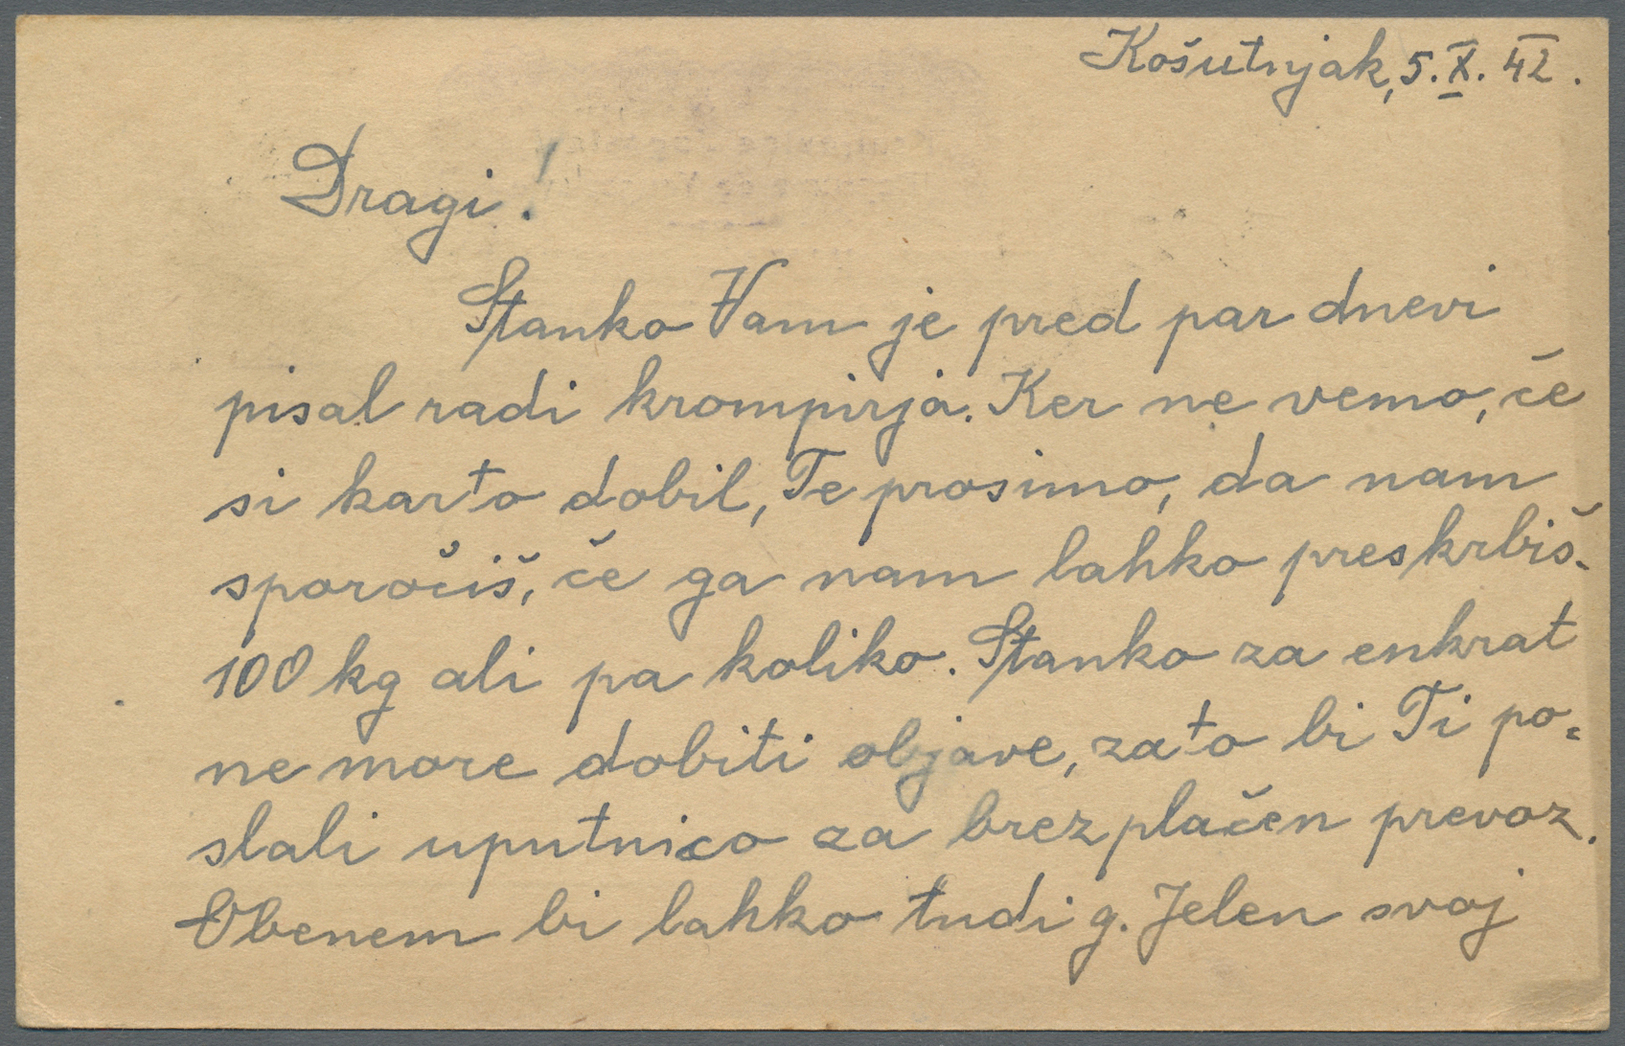 Košutnjak, 5. X. 42.
Dragi!
Stanko Vam je pred par dnevi
pisal radi krompirja. Ker ne vemo, če
si karto dobil, Te prosimo, da nam
sporočiš, če ga nam lahko preskrbiš.
100 kg ali pa koliko. Stanko za enkrat
ne more dobiti objave, zato bi Ti po=
slali uputnico za brezplačen prevoz.
Obenem bi lahko tudi g. Jelen svoj